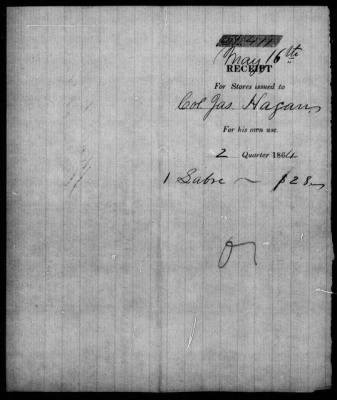 May 16th
RECEIPT
For Stores issued to
Col Jas. Hagan,
For his own use.
2 Quarter 1864
1 Sabre ~ $28